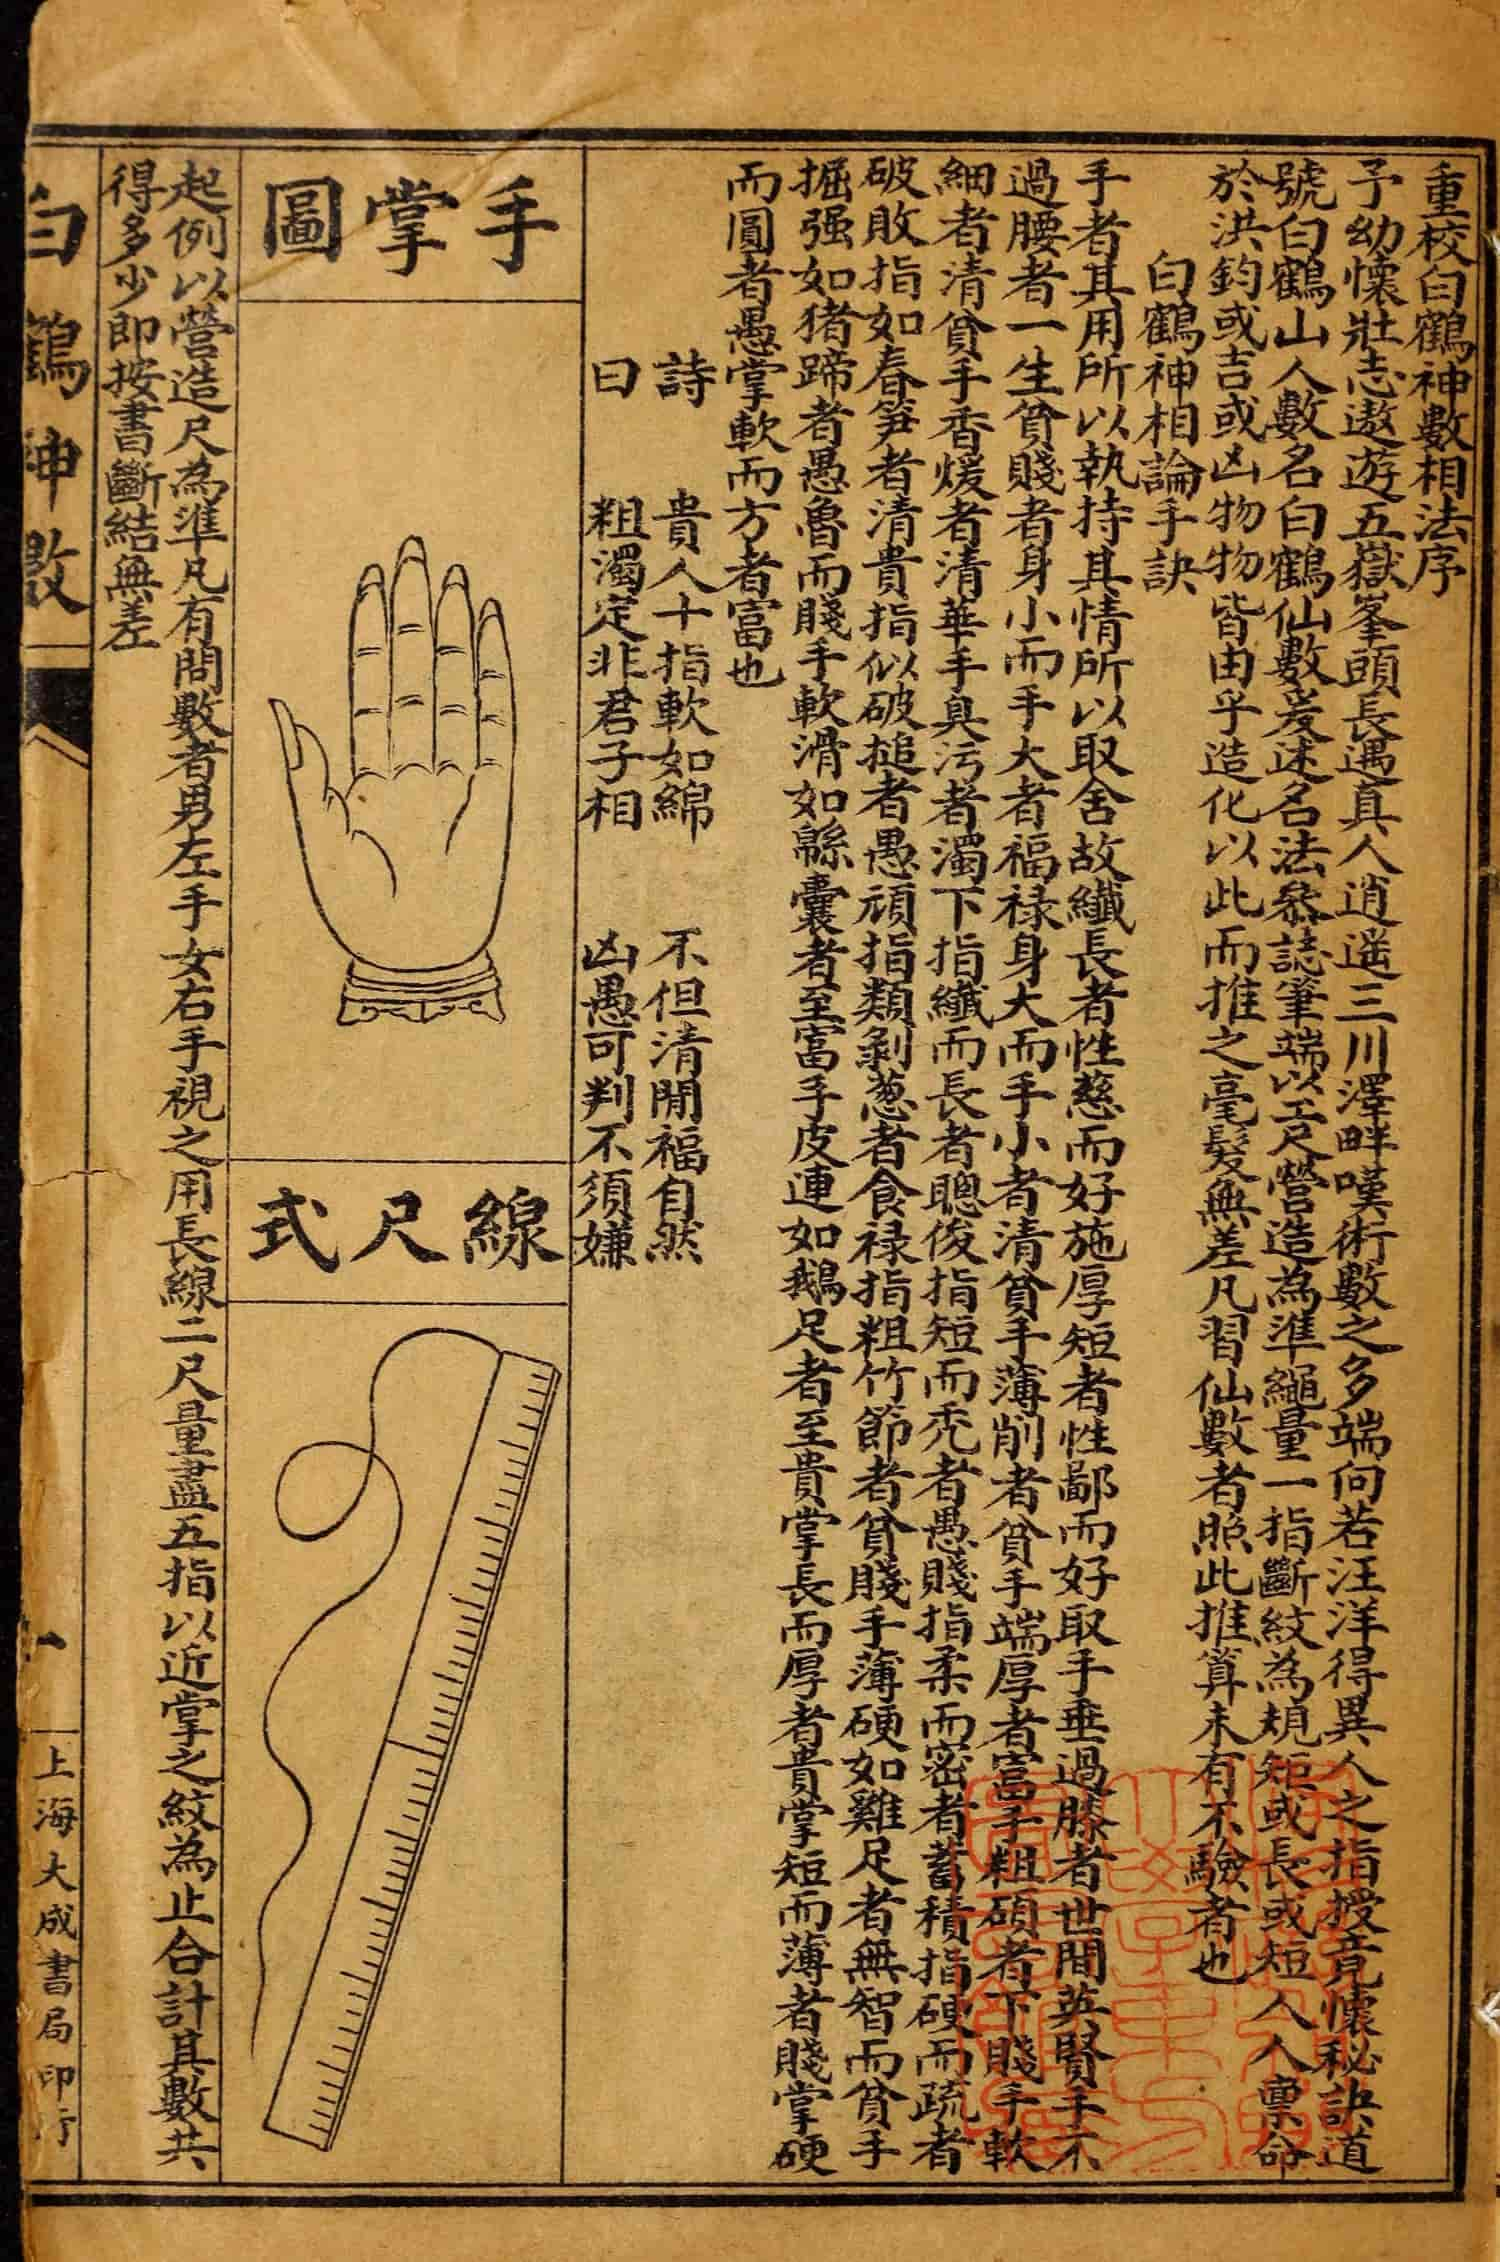 重校白鶴神數相法序
予幼懷壯志遨遊五嶽峯頭長遇真人逍遥三川澤畔嘆術數之多端向若汪洋得異人之指授竟懷秘訣道
號白鶴山人數名白鶴仙數爰述名法恭誌筆端以工尺營造為準繩量一指斷紋為規矩或長或短人人稟命
於洪鈞或吉或凶物物皆由乎造化以此而推之毫髮無差凡習仙數者照此推算未有不驗者也
白鶴神相論手訣
手者其用所以執持其情所以取舍故纖長者性慈而好施厚短者性鄙而好取手垂過膝者世間英賢手不
過腰者一生貧賤者身小而手大者福禄身大而手小者清貧手薄削者貧手端厚者富手粗碩者下賤手軟
細者清貧手香煖者清華手臭污者濁下指纖而長者聰俊指短而秃者愚賤指柔而密者蓄積指硬而疏者
破敗指如春笋者清貴指似破搥者愚頑指類剝葱者食禄指粗竹節者貧賤手薄硬如雞足者無智而貧手
掘强如猪蹄者愚魯而賤手軟滑如緜囊者至富手皮連如鵝足者至貴掌長而厚者貴掌短而薄者賤掌硬
而圓者愚掌軟而方者富也
詩曰
貴人十指軟如綿 不但清閒福自然
粗濁定非君子相 凶愚可判不須嫌
手掌圖
線尺式
起例以營造尺為準凡有問數者男左手女右手視之用長線二尺量盡五指以近掌之紋為止合計其數共
得多少即按書斷結無差
白鶴神數
一
上海大成書局印行